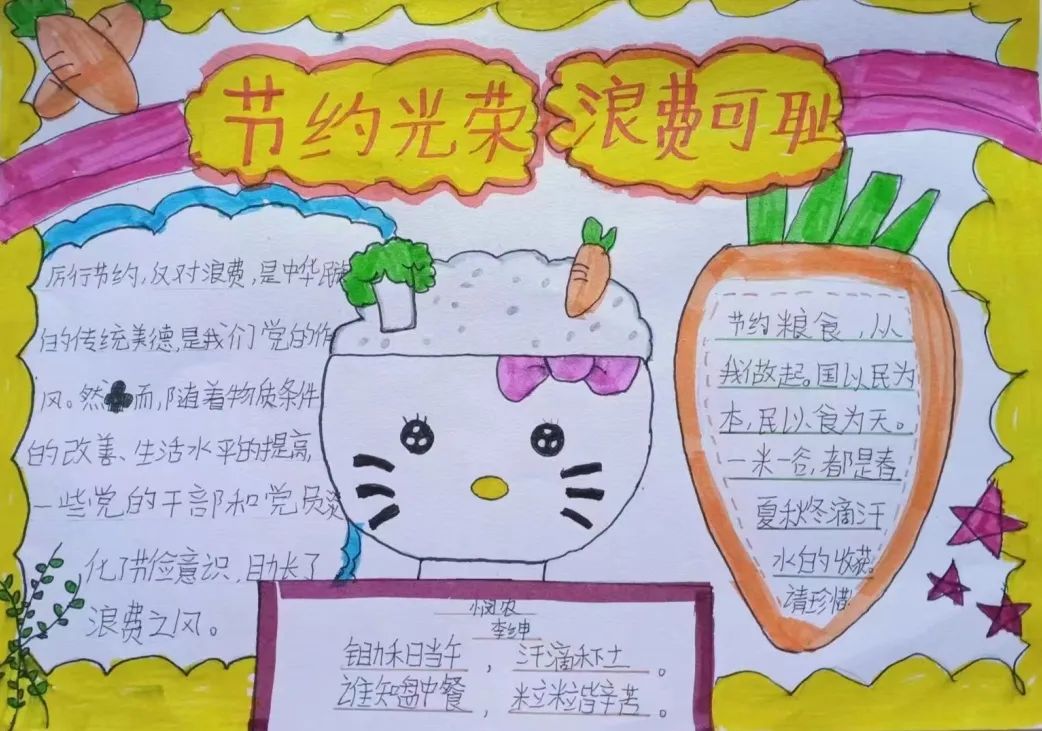 节约光荣 浪费可耻
厉行节约,反对浪费,是中华民族
的传统美德,是我们党的作
风。然而,随着物质条件
的改善、生活水平的提高,
一些党的干部和党员淡
化了节俭意识,助长了
浪费之风。
节约粮食,从
我做起。国以民为
本,民以食为天。
一米一谷,都是春
夏秋冬滴汗
水的收获。
请珍惜
悯农
李绅
锄禾日当午,汗滴禾下土。
谁知盘中餐,粒粒皆辛苦。